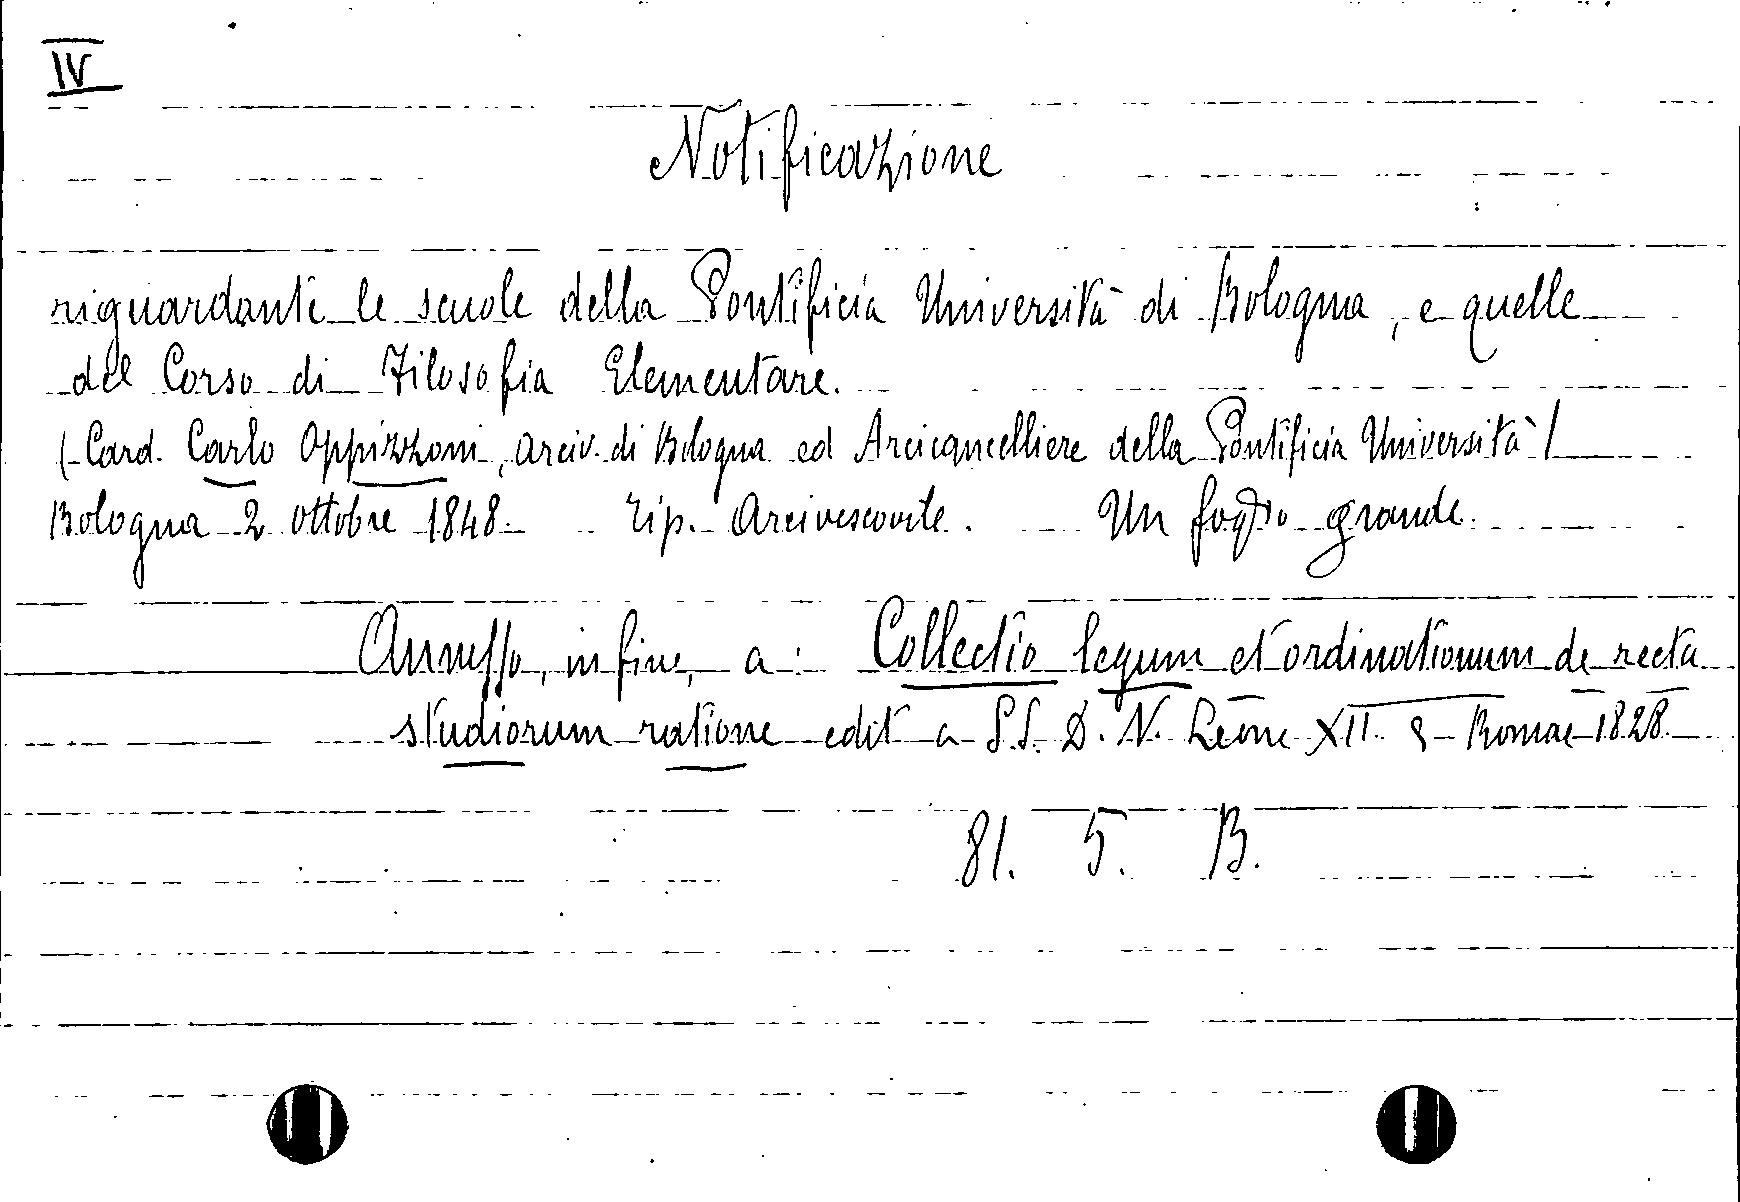 IV
Notificazione
riguardante le scuole della Pontificia Università di Bologna, e quelle
del Corso di Filosofia Elementare.
(Card. Carlo Oppizzoni, arciv. di Bologna ed Arcicancelliere della Pontificia Università)
Bologna 2 ottobre 1848. Tip. Arcivescovile. Un foglio grande.
Annesso, in fine, a: Collectio legum et ordinationum de recta
studiorum ratione edit a SS. D. N. Leone XII. Romae 1828.
81. 5. B.